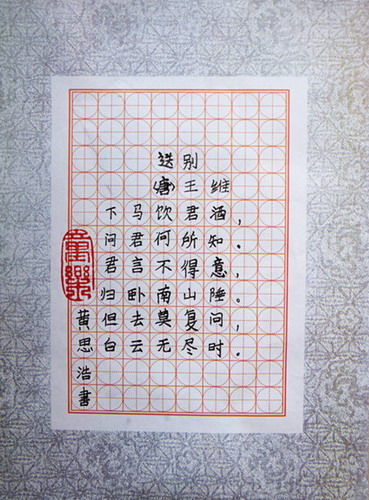 送别
(唐)王维
下马饮君酒，
问君何所知．
君言不得意，
归卧南山陲。
但去莫复问，
白云无尽时．
童乐
黄思浩书